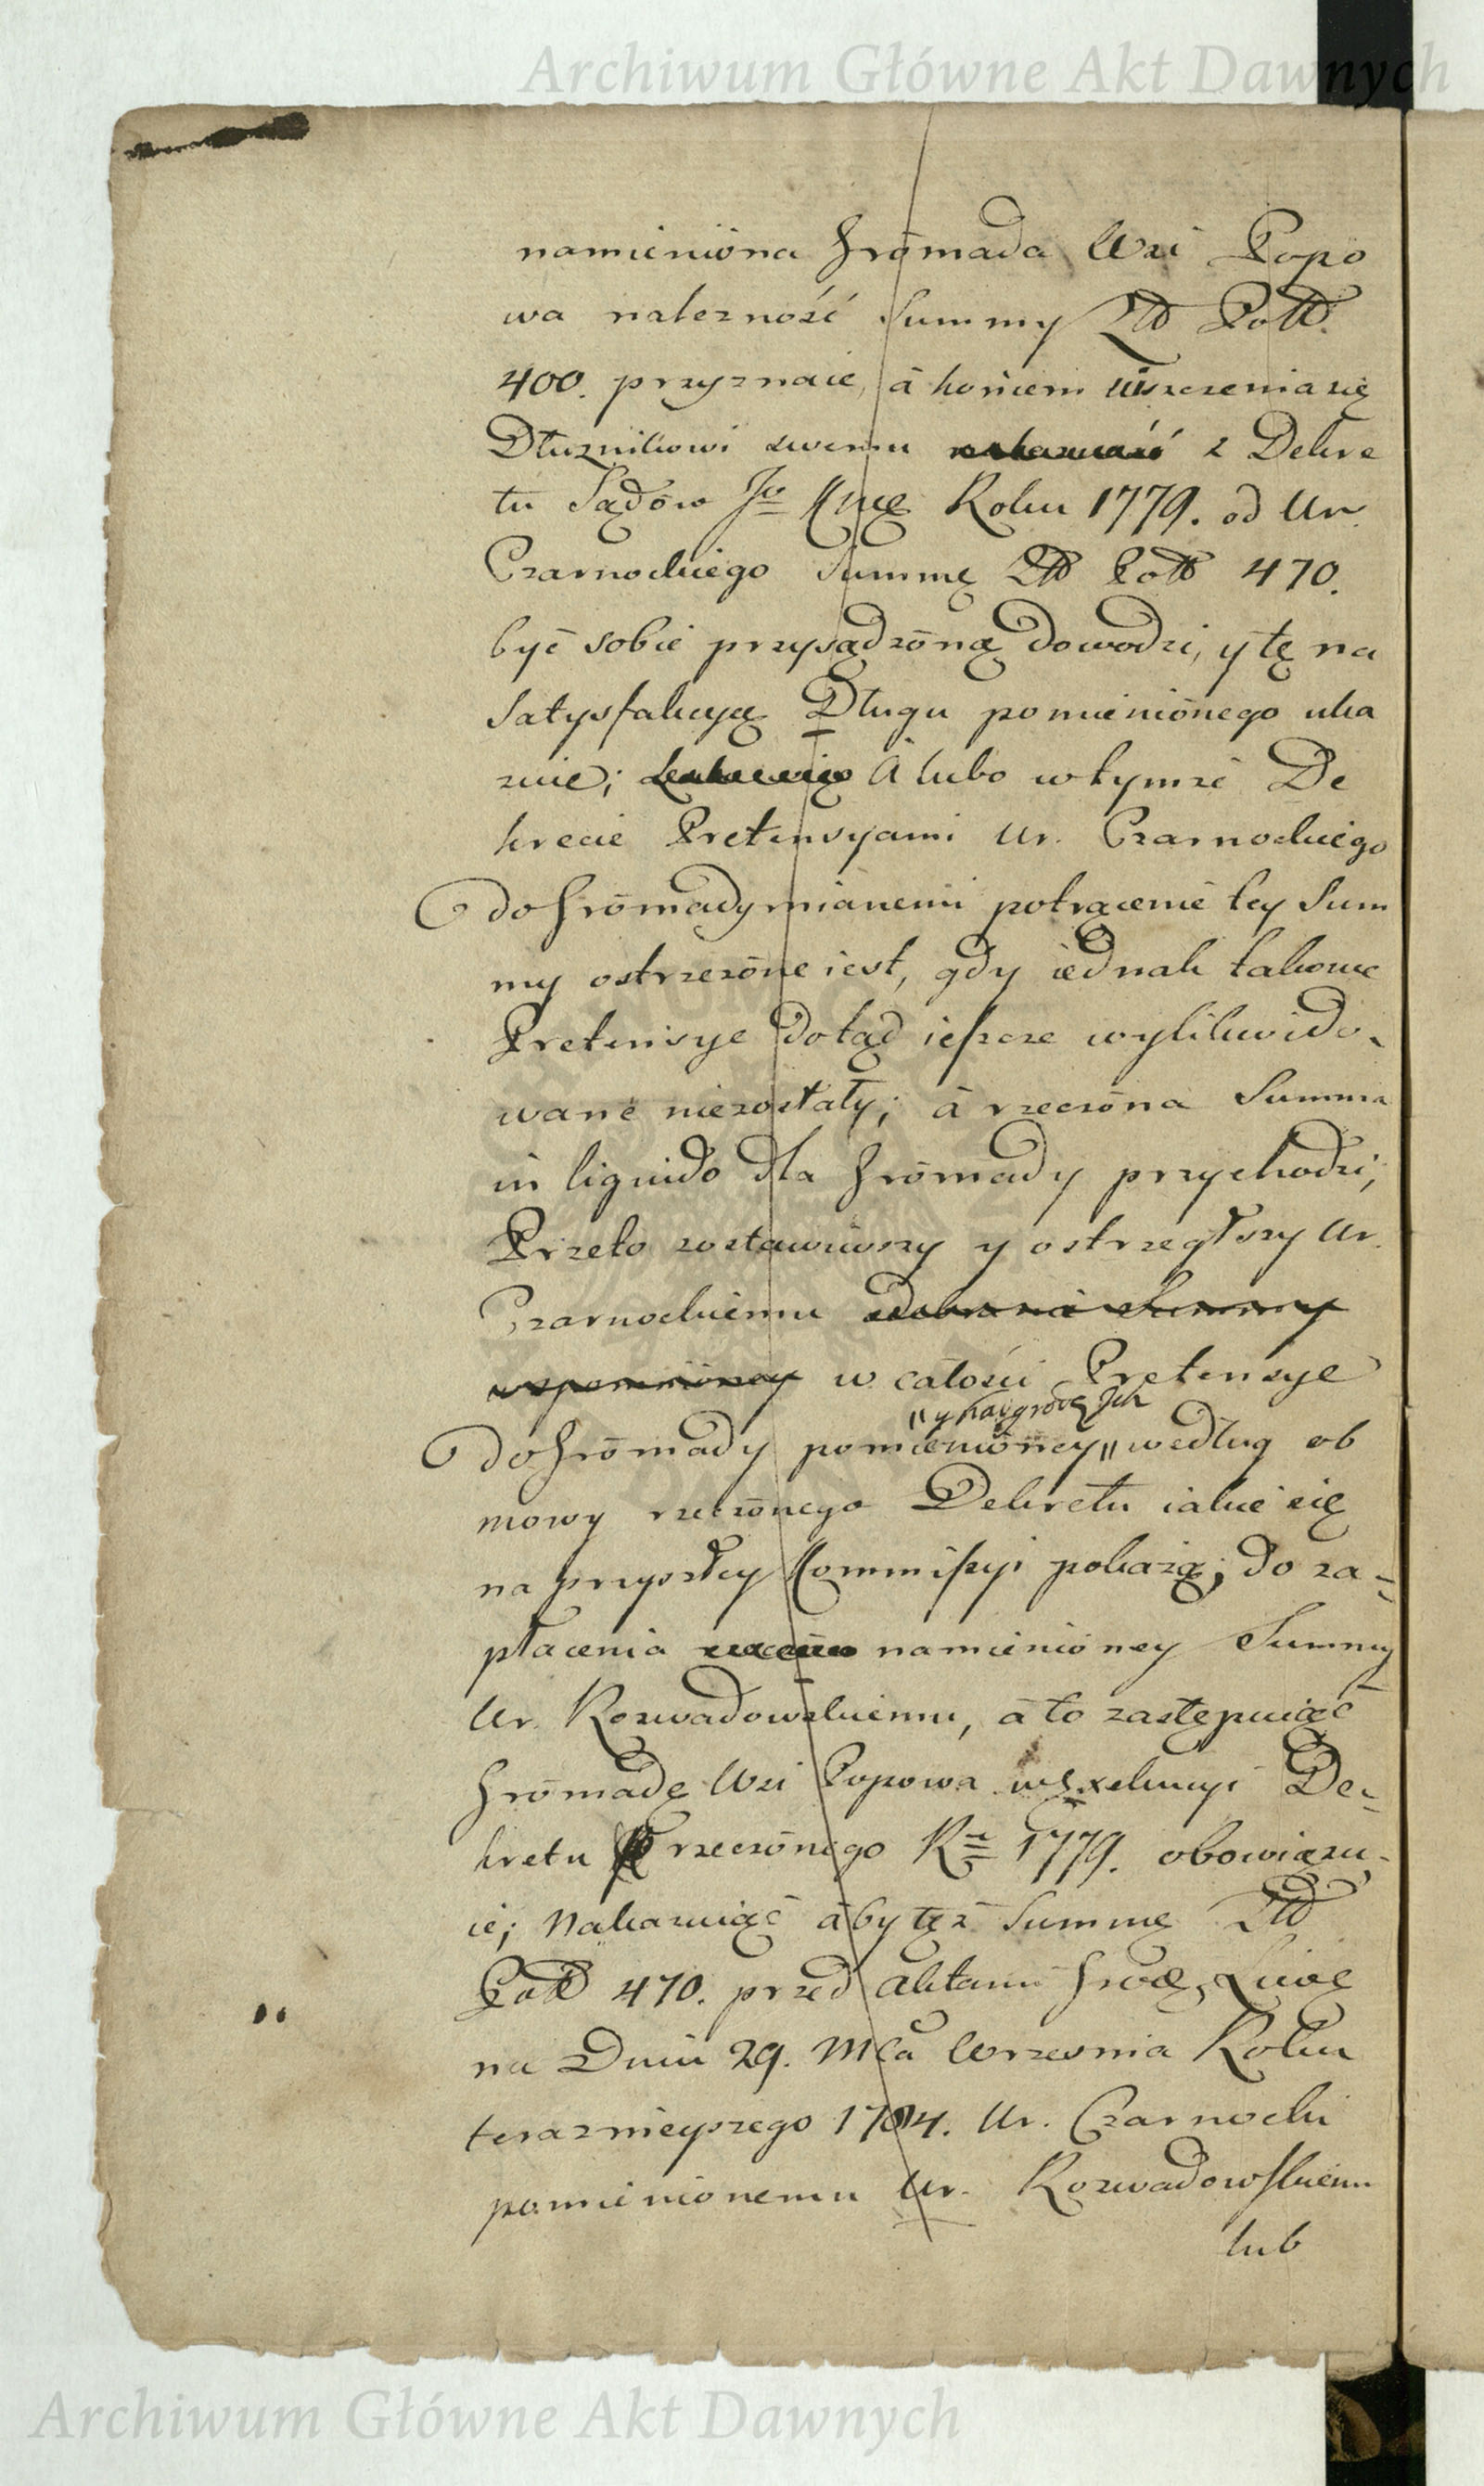 Archiwum Główne Akt Dawnych
namieniōna Grōmada Wsi Popo
wa należność Summy Złł Poll.
400. przyznaie, à końcem uiszczenia się
Dłużnikowi swemu z Dekre
tu Sądów Jo Kmcę Roku 1779. od Ur.
Czarnockiego Summę Złł Poll 470.
być sobie przysądzōną dowodzi, y tę na
Satysfakcyą Długu pomieniōnego uka
zuie; à lubo w tymże De
krecie Pretensyami Ur. Czarnockiego
do Grōmady mianemi potrącenie tey Sum
my ostrzezōne iest, gdy iednak takowe
Pretensye dotąd ieszcze wylikwido-
wane niezostały; à rzeczōna Summa
in liquido dla Grōmady przychodzi;
Przeto zostawiwszy y ostrzegłszy Ur.
Czarnockiemu
wspomniōney w całości Pretensye
"y nadgrodę Ich
do Grōmady pomieniōney" według ob
mowy rzeczōnego Dekretu iakie się
na przyszłey Kommissyi pokażą; do za-
płacenia namieniōney Summy
Ur. Rozwadowskiemu, à to zastępuiąc
Grōmadę Wsi Popowa w Exekucyi De-
kretu rzeczōnego Ru 1779. obowiązu-
ie; Nakazuiąc àby tęż Summę Złł
Poll 470. przed Aktami Grodz. Liwę
na Dniu 29. Mca Września Roku
teraznieyszego 1784. Ur. Czarnocki
pomienionemu Ur. Rozwadowskiemu
lub
Archiwum Główne Akt Dawnych